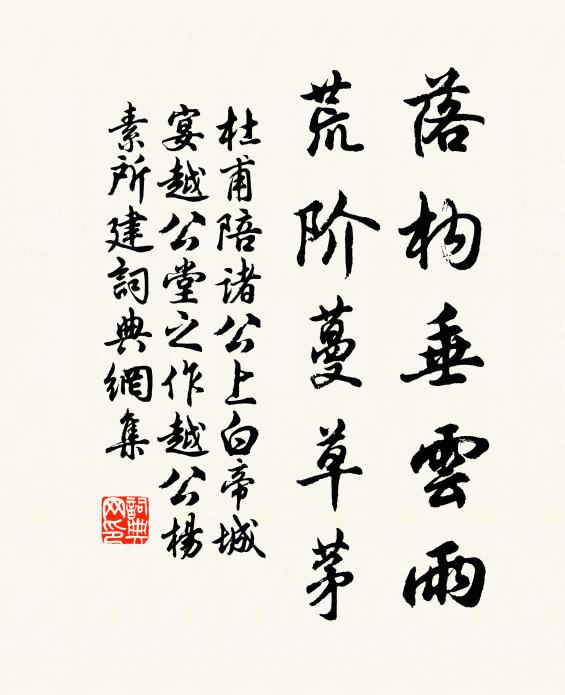 落构垂雲雨
荒阶蔓草茅
杜甫陪诸公上白帝城
宴越公堂之作越公楊
素所建詞典網集
詞典网印